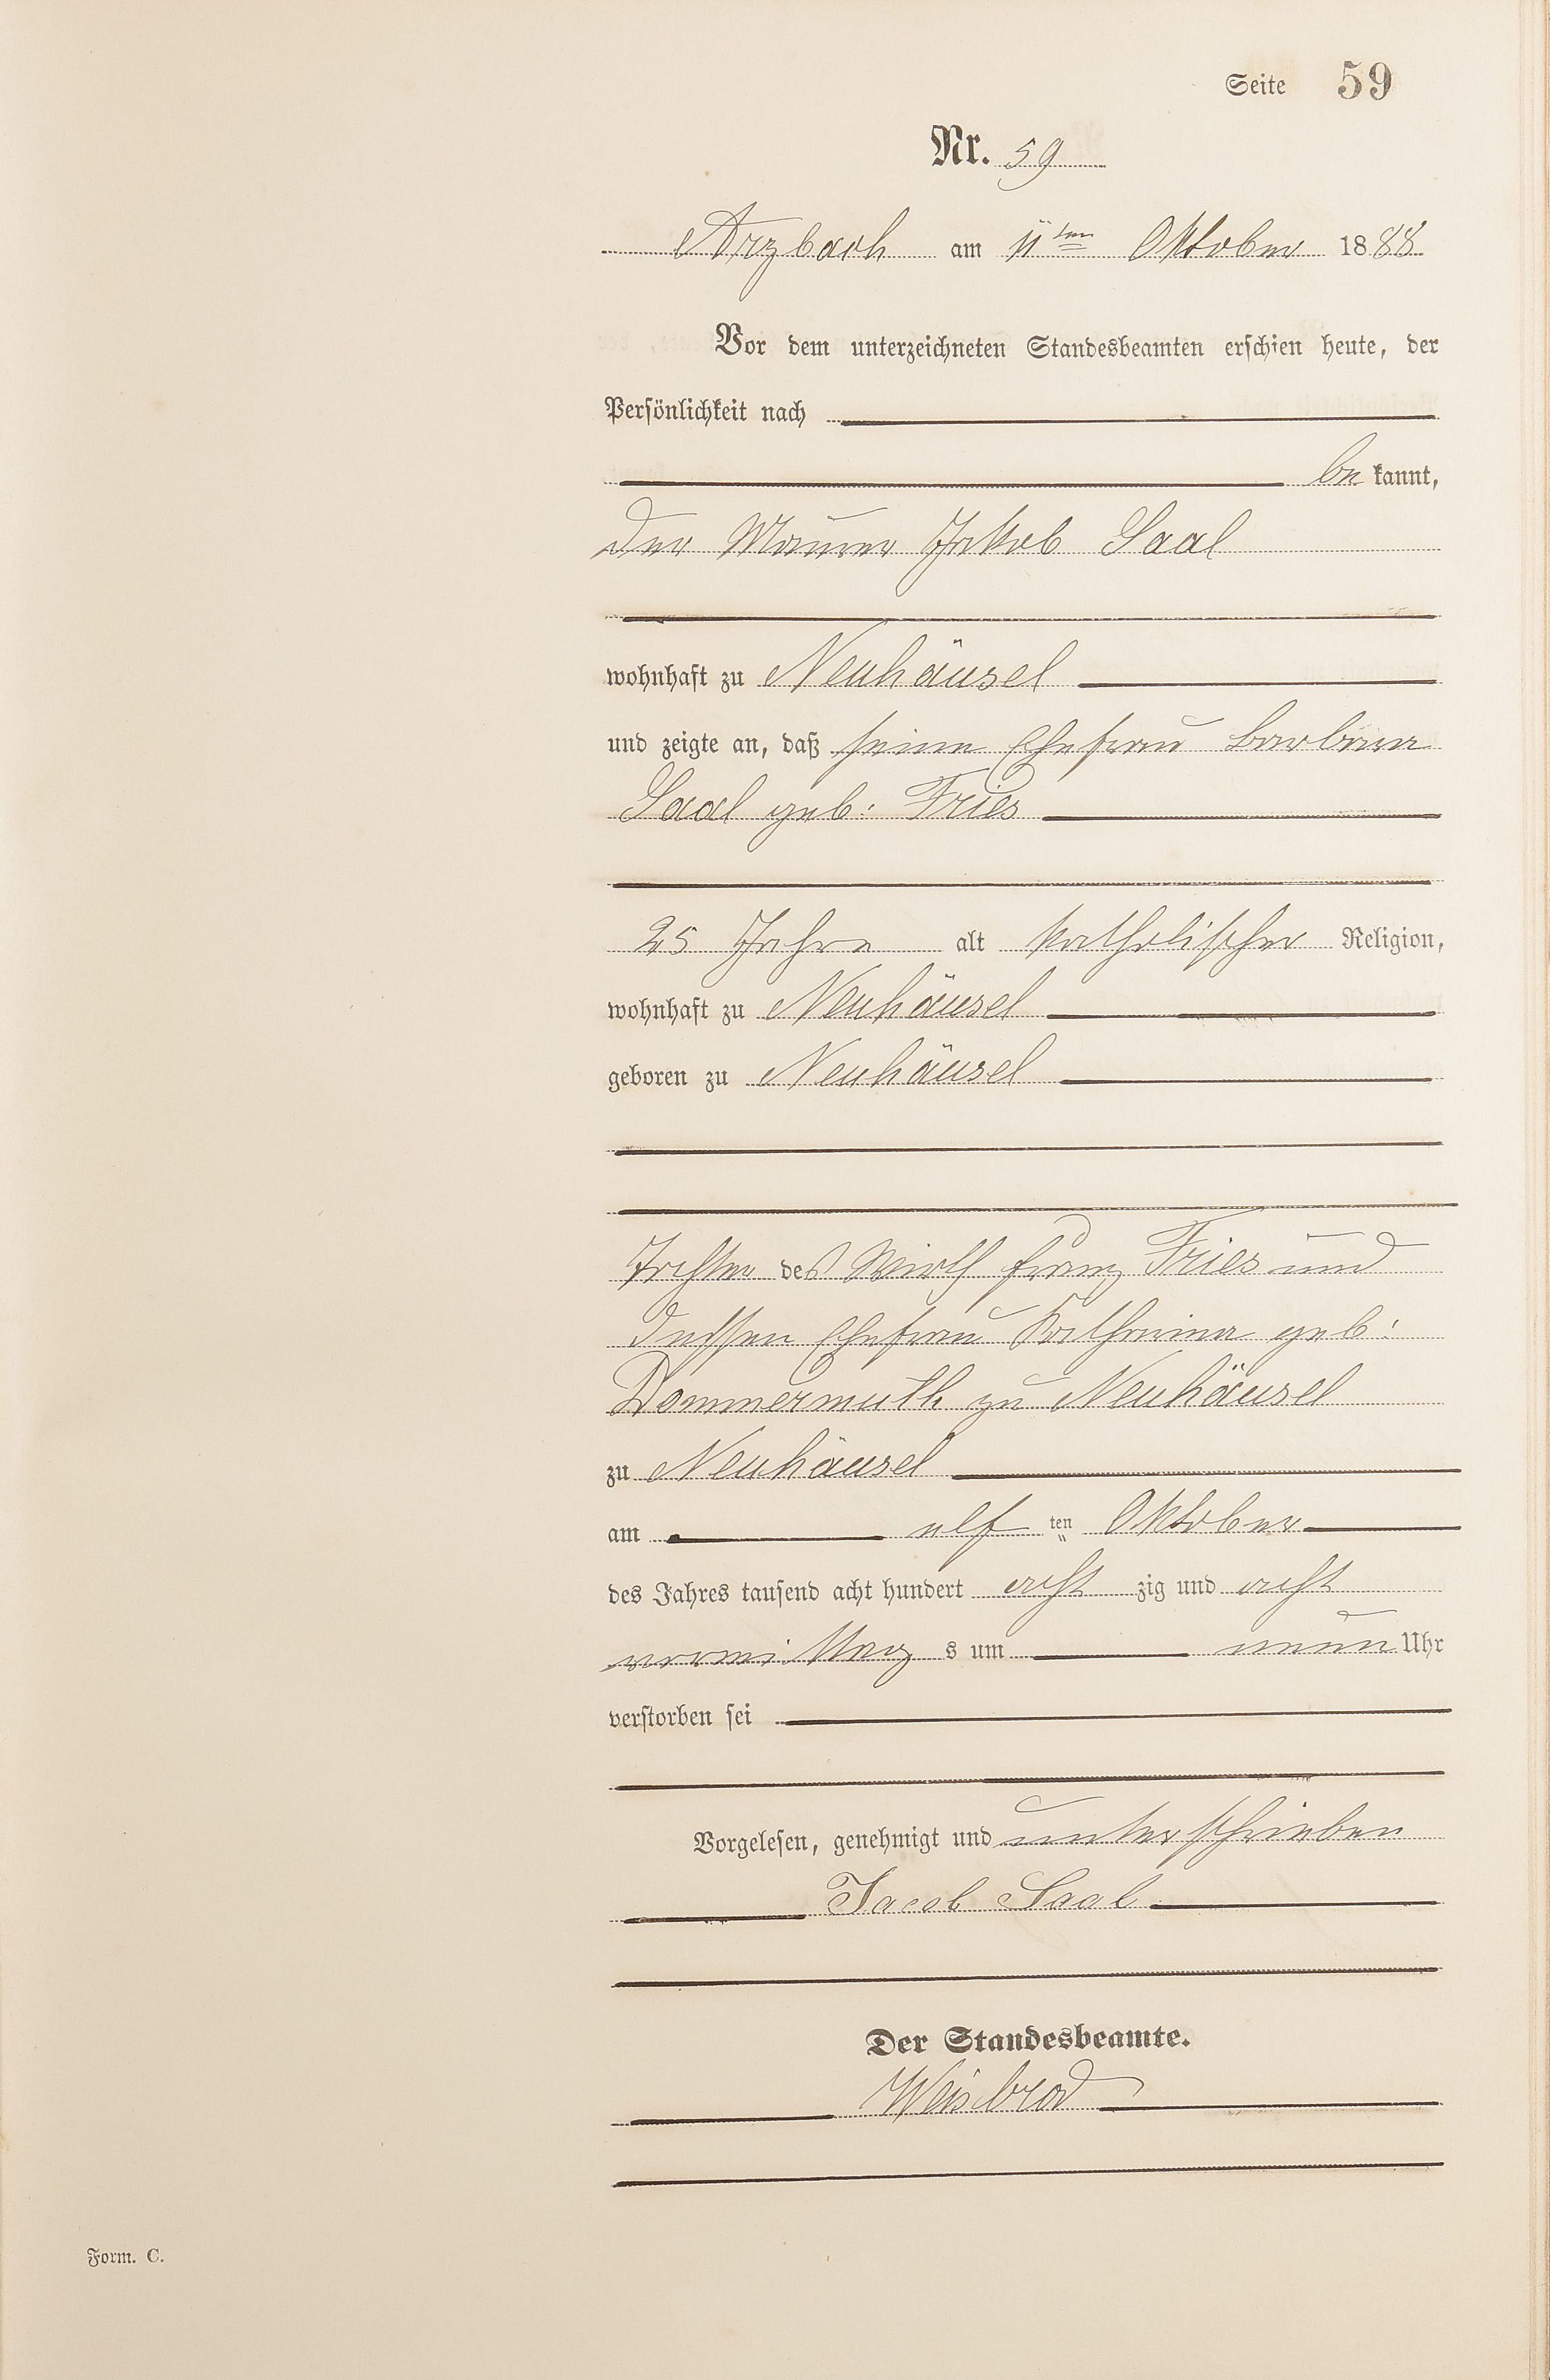 Seite 59
Nr. 59
Arzbach am 11ten Oktober 1888
Vor dem unterzeichneten Standesbeamten erschien heute, der
Persönlichkeit nach
bekannt,
der Maurer Jakob Saal
wohnhaft zu Neuhäusel
und zeigte an, daß seine Ehefrau Barbara
Saal geb: Fries
25 Jahre alt katholischer Religion,
wohnhaft zu Neuhäusel
geboren zu Neuhäusel
Tochter des Wirth Franz Fries und
dessen Ehefrau Katharina geb:
Dommermuth zu Neuhäusel
zu Neuhäusel
am elf ten Oktober
des Jahres tausend acht hundert acht zig und acht
vormittag s um neun Uhr
verstorben sei
Vorgelesen, genehmigt und unterschrieben
Jacob Saal
Der Standesbeamte.
Weisbrod
Form. C.